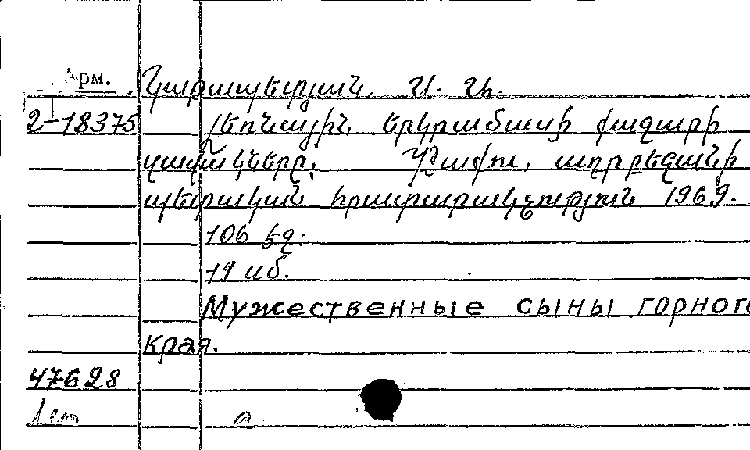 Арм.
Կարապետյան. Ս. Ն.
2-18375 Լեռնային երկրամասի քաջարի
զավակները. Բաքու, ադրբեջանի
պետական հրատարակչություն 1969.
106 էջ.
14 սմ.
Мужественные сыны горного
края.
47628